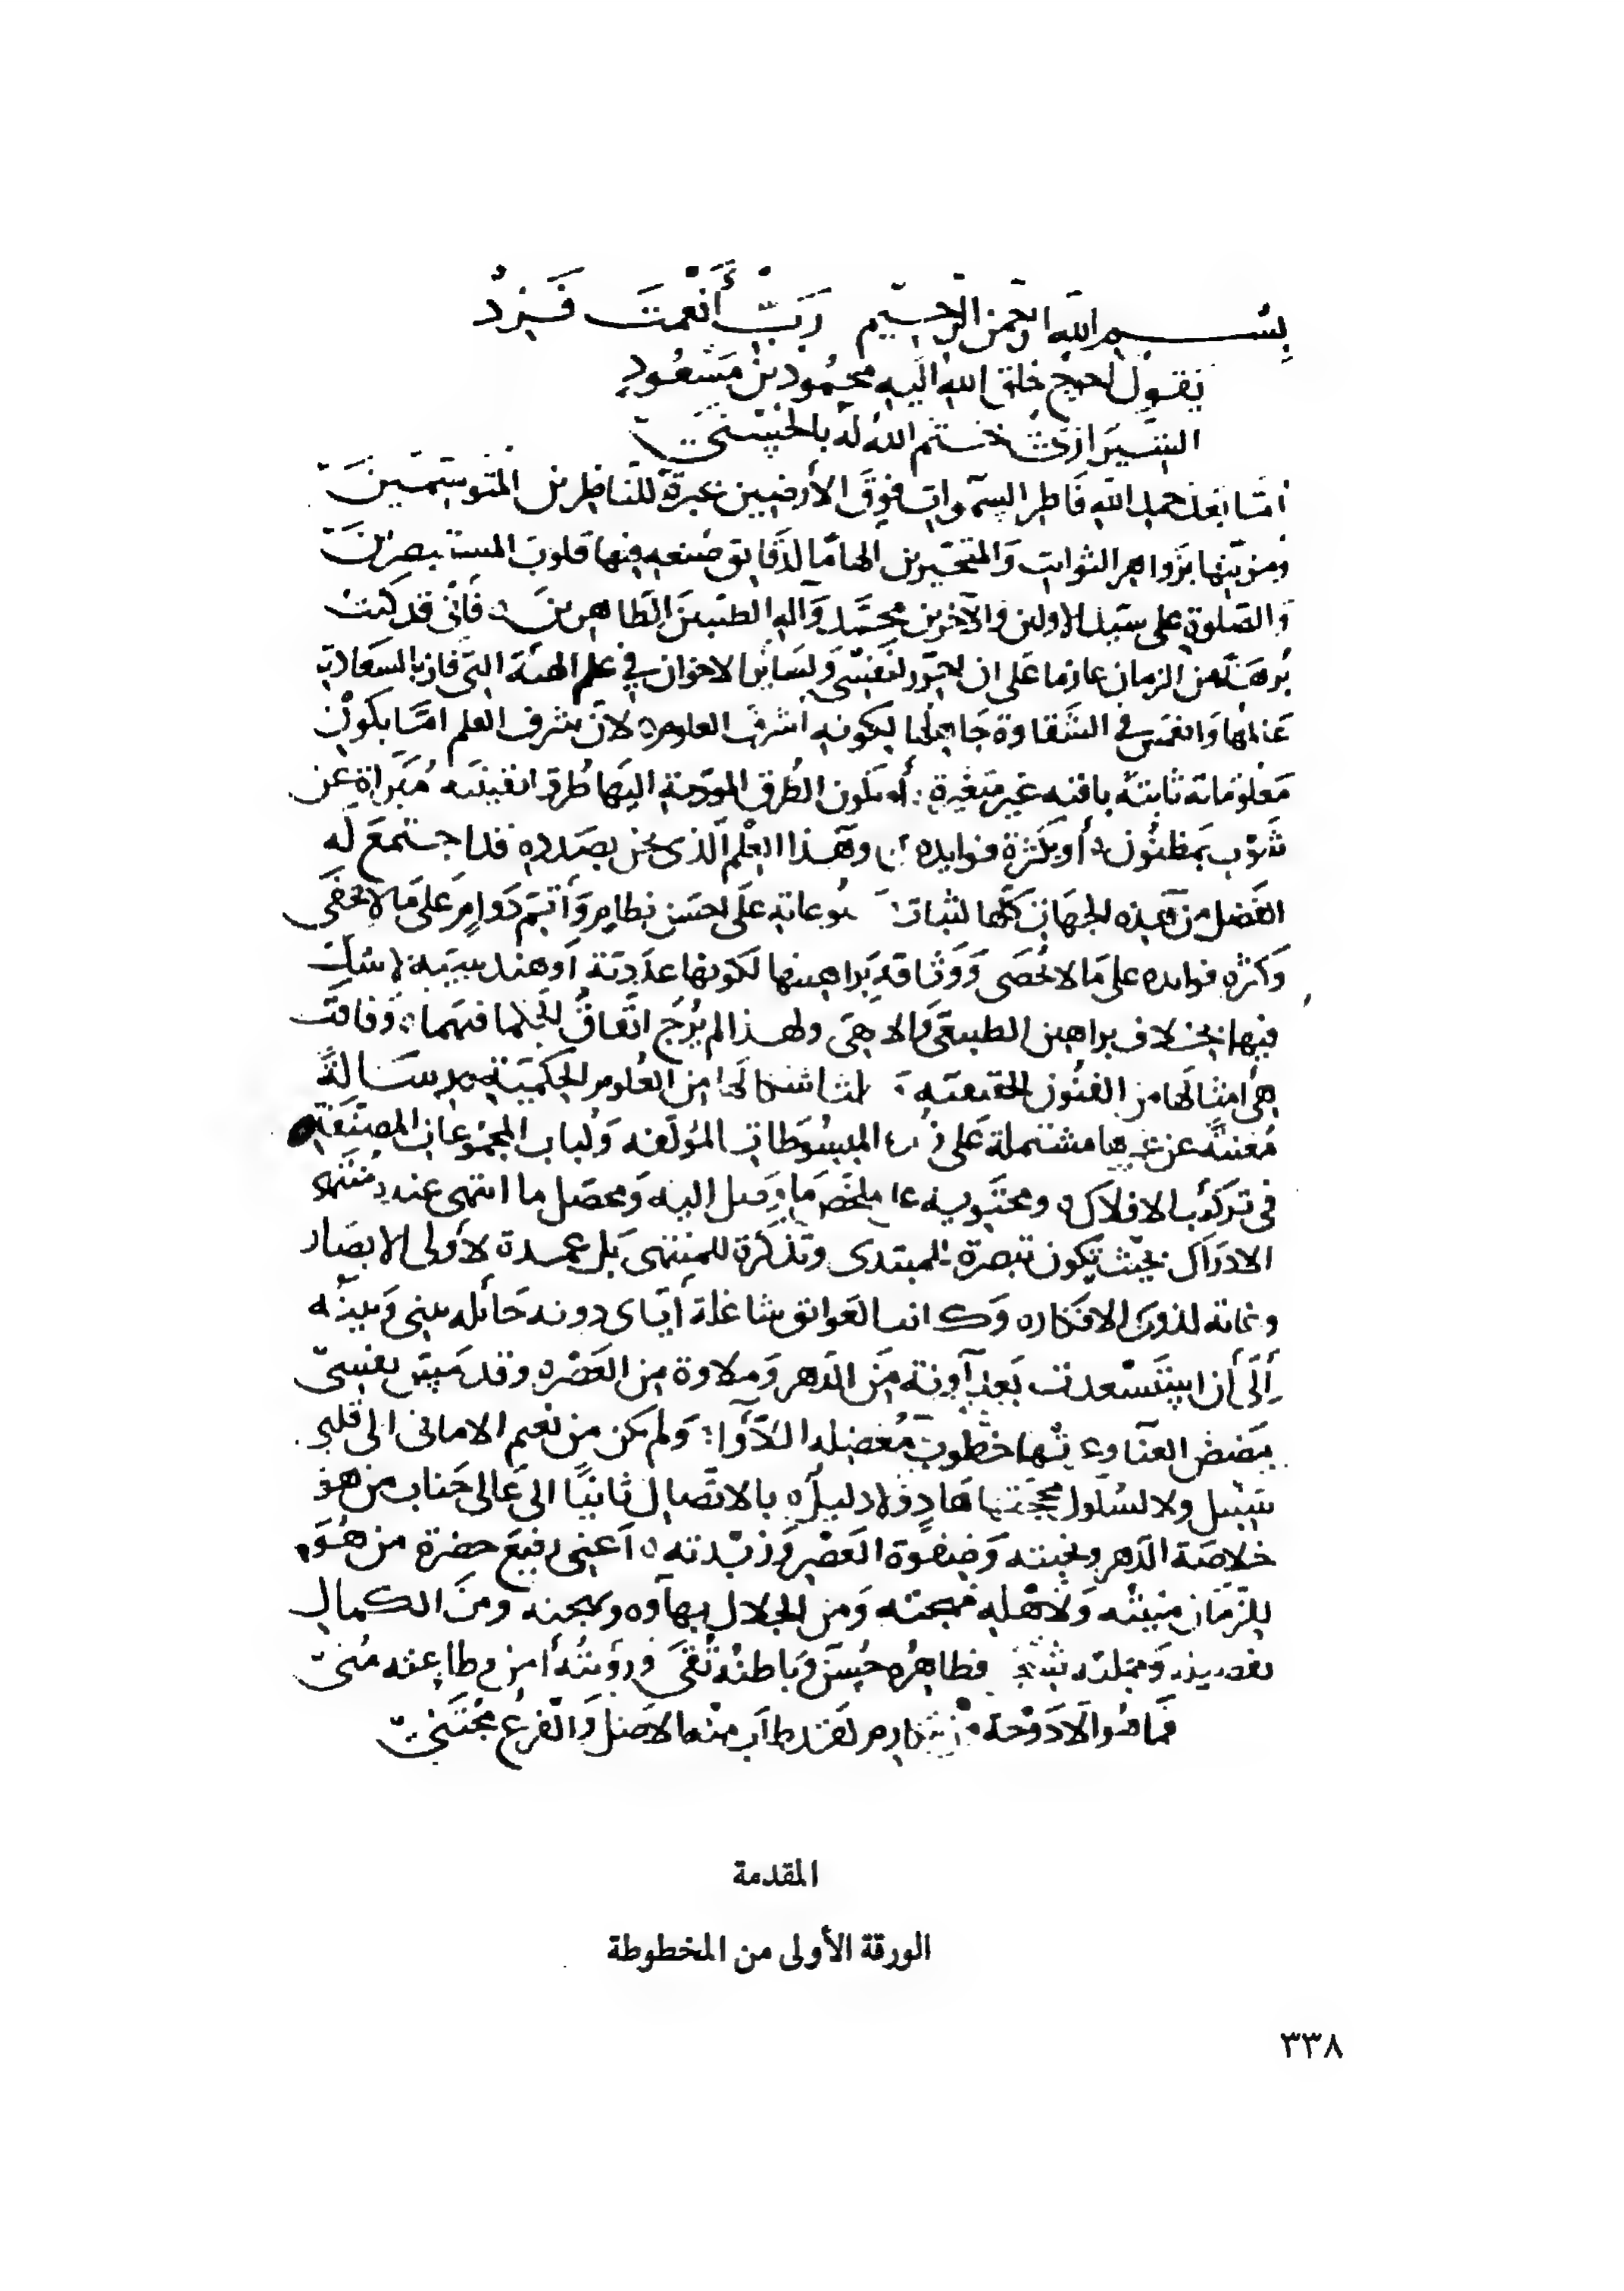 بسم الله الرحمن الرحيم رَبِّ أَنْعَمْتَ فَزِدْ
يقول احوج خلق الله اليه محمود بن مسعود
الشيرازي ختم الله له بالحسنى
اما بعد حمد الله فاطر السموات فوق الأرضيين عبرة للناظرين المتوسمين
ومزينها بزواهر الثوابت والمتحيرين الهاما لدقايق صنعه فيها قلوب المستبصرين
والصلوة على سيد الاولين والآخرين محمد وآله الطيبين الطاهرين فأنى قد كنت
برهة من الزمان عازما على ان احرر لنفسى ولساير الاخوان في علم الهيئة التى فاز بالسعادة
عالمها وانغمس في الشقاوة جاهلها لكونه اشرف العلوم لان شرف العلم امّا بكون
معلوماته ثابتة باقيه غير متغيرة أو بكون الطرق المودية اليها طرقا يقينيه مبراة عن
شوب بمظنون أو بكثرة فوايده وهذا العلم الذى نحن بصدده قد اجتمع له
الفضل من هذه الجهات كلها لثبات على احسن نظام وأتم دوام على ما لا يخفى
وكثرة فوايده على ما لا يحصى ووثاقة براهينها لكونها عددية أو هندسية لا شك
فيها بخلاف براهين الطبيعى والالاهى ولهذا لم يرج اتفاق الحكما فيهما وفاقت
هى امثالها من الفنون الحقيقيه من العلوم الحكمية رسالة
مغنية عن غيرها مشتملة على المبسوطات المؤلفه ولباب المجموعات المصنفة
فى تركيب الافلاك ومحتوية على ملخص ما وصل اليه ومحصل ما انتهى عنده منتهى
الادراك بحيث يكون تبصرة للمبتدى وتذكرة للمنتهى بل عمدة لأولى الابصار
وغاية لذوى الافكار وكانت العوائق شاغلة اياى دونه حائله بينى وبينه
إلى أن استسعدت بعد آونة من الدهر وملاوة من العصر وقد نفسى
بمضض العنا خطوب معضله اللأوا ولم يكن من نعيم الامانى الى قلبى
سبيل ولا لسلوك محجتها هاد ولا دليل بالاتصال ثانيًا الى عالى جناب من هو
خلاصة الدهر ونخبته وصفوة العصر وزبدته اعنى رفيع حضرة من هو
للزمان ولأهله ومن الجلال بهاوه وبهجته ومن الكمال
فظاهره حسن وباطنه تقى ورؤيته أمن وطاعته منى
فما هو الا دوحة لقد طاب منها الاصل والفرع مجتنى
المقدمة
الورقة الأولى من المخطوطة
٣٣٨